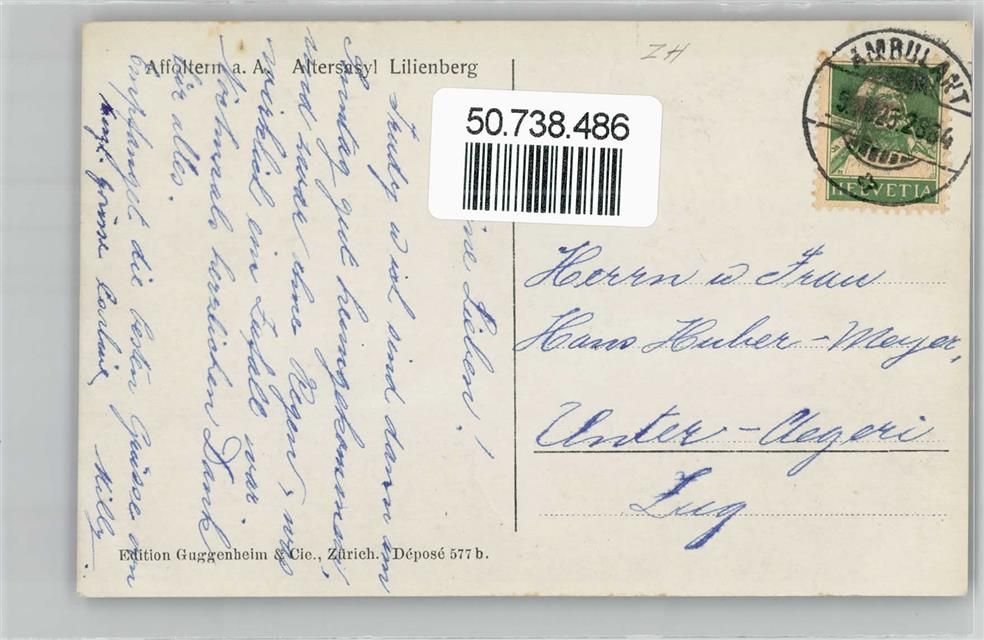 Affoltern a. A. Altersasyl Lilienberg
ZH
AMBULANT
HELVETIA
50.738.486
ine Lieben!
Trudy u ich sind dann am
Sonntag gut heimgekommen,
und zwar ohne Regen, was
wirklich ein Zufall war.
Nochmals herzlichen Dank
für alles.
empfanget die besten Grüsse von
Milly.
Herrn u Frau
Hans Huber-Meyer,
Unter-Aegeri
Zug
Edition Guggenheim & Cie., Zürich. Déposé 577 b.